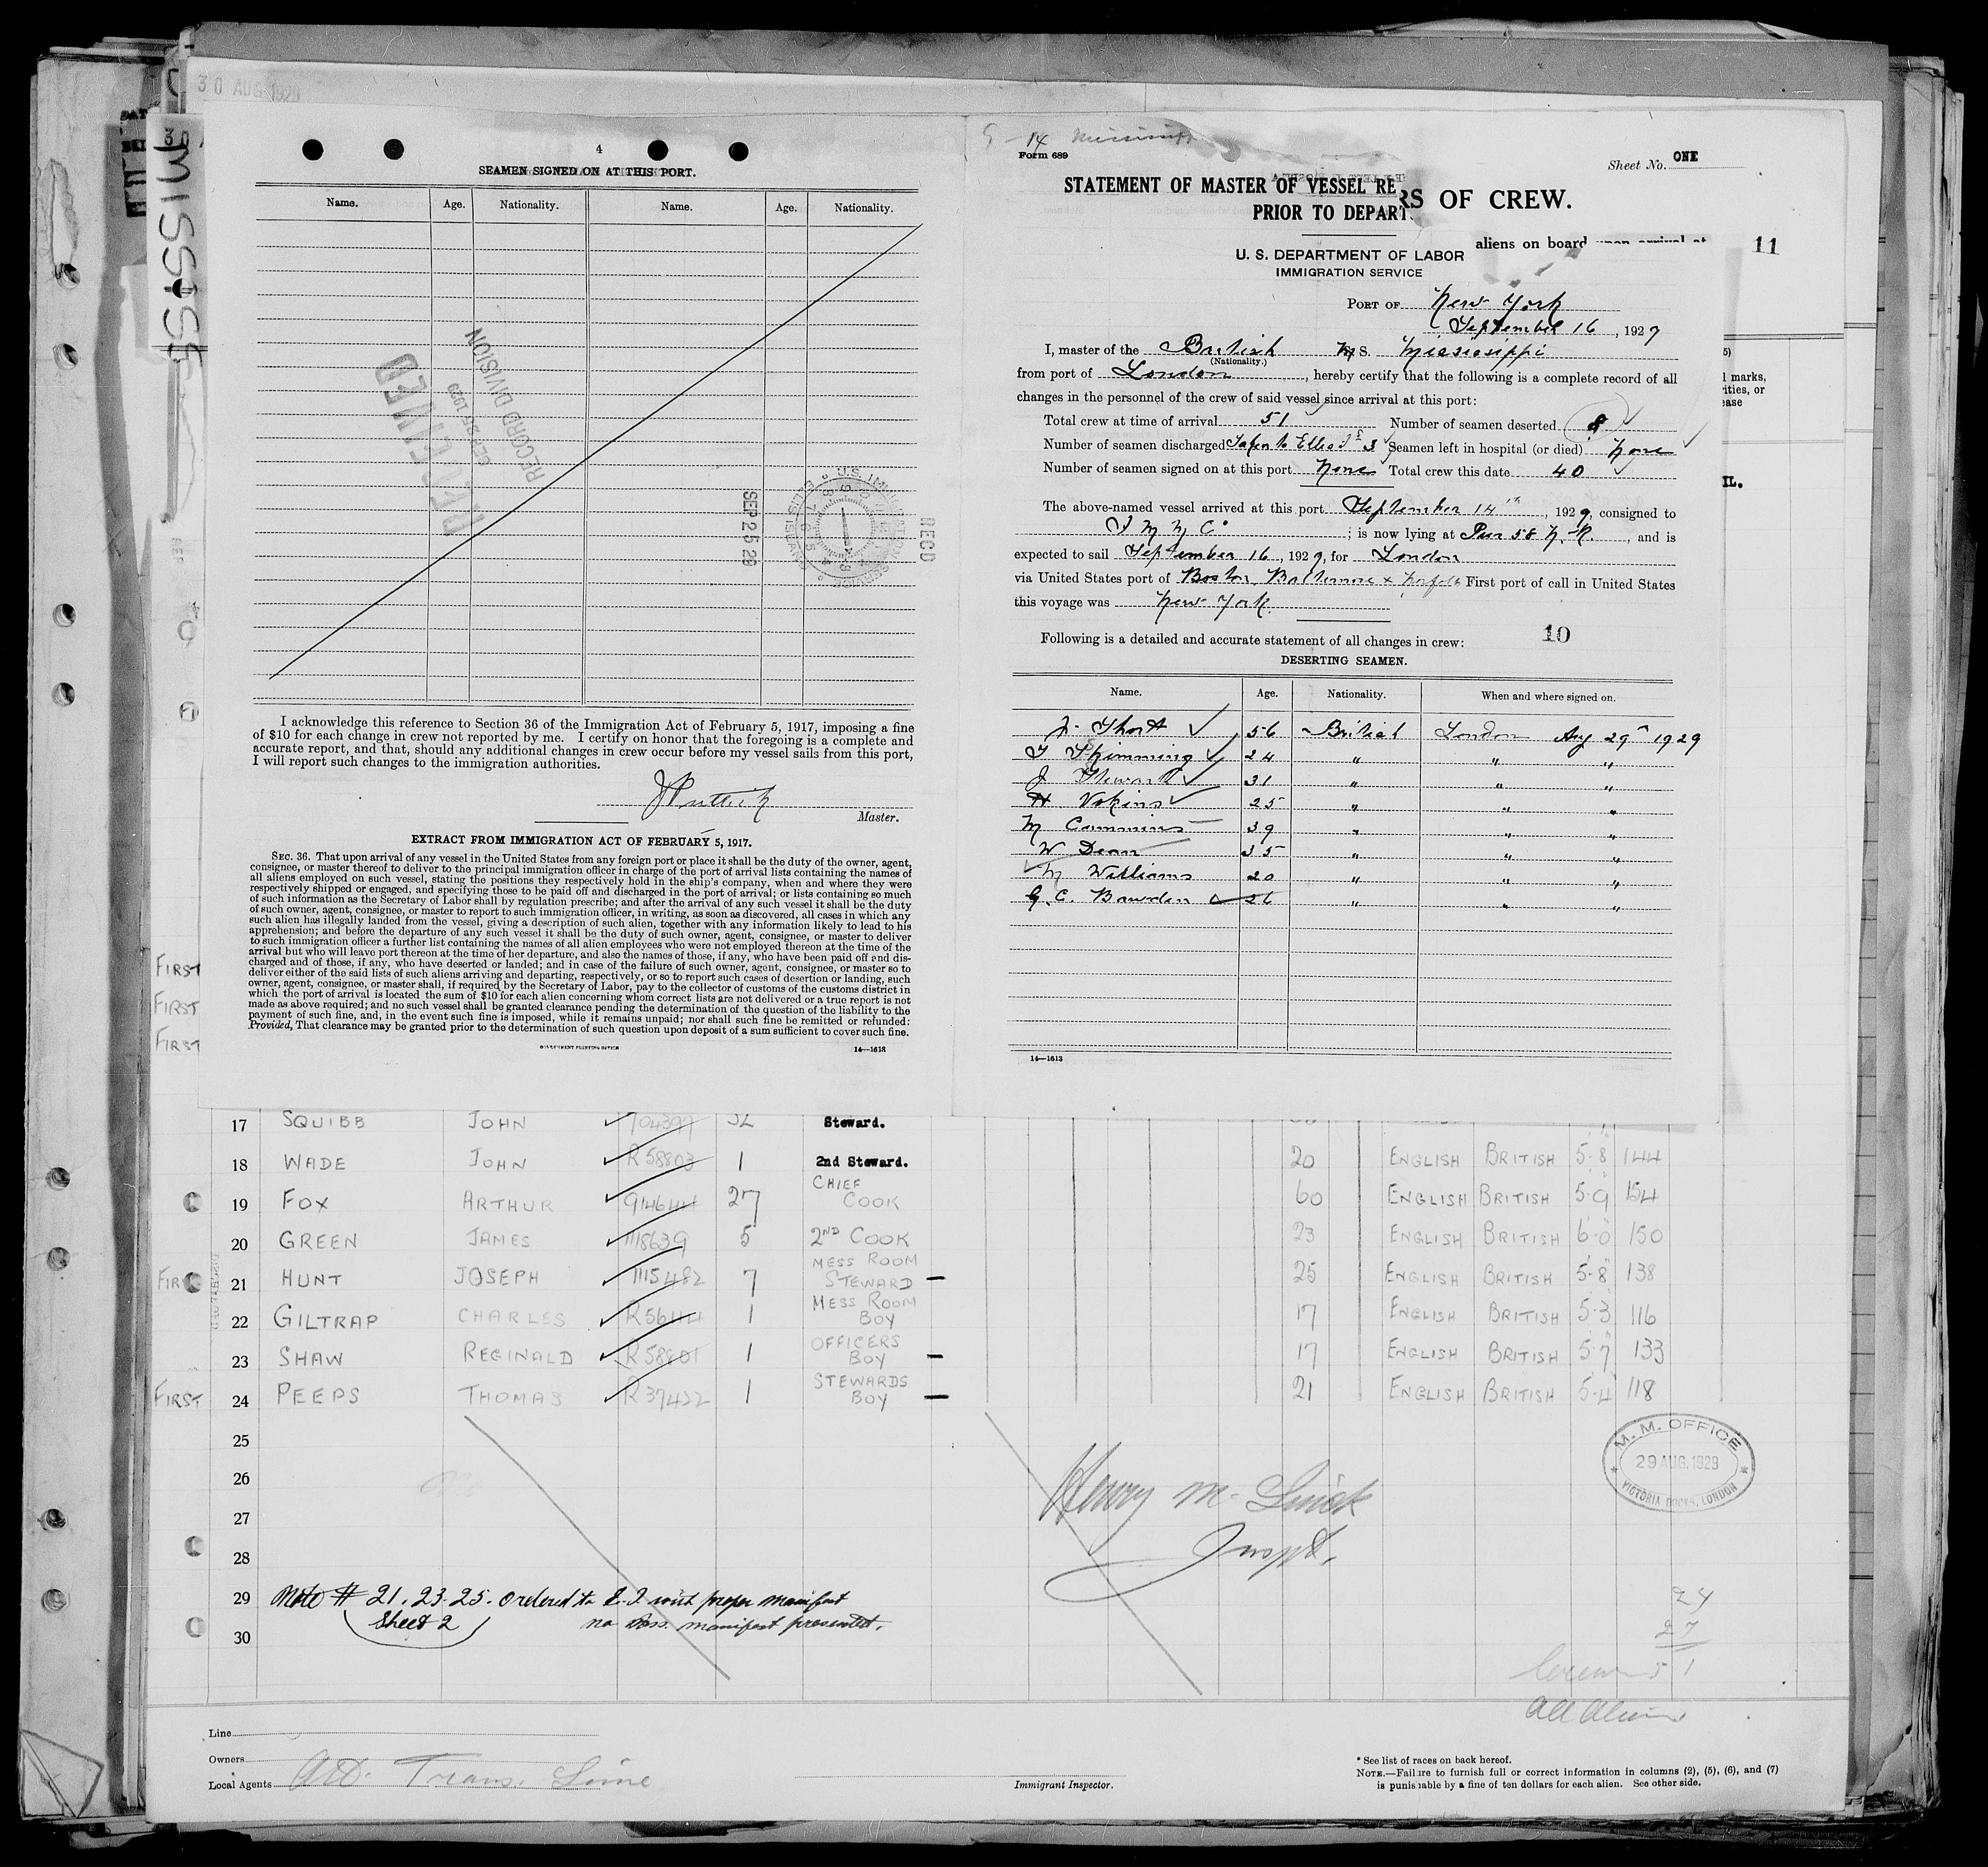 30 AUG 1929
MISSISS
4
SEAMEN SIGNED ON AT THIS PORT.
Name. Age. Nationality. Name. Age. Nationality.
RECEIVED
SEP 25 1929
RECORD DIVISION
SEP 25 29
RECD
I acknowledge this reference to Section 36 of the Immigration Act of February 5, 1917, imposing a fine
of $10 for each change in crew not reported by me. I certify on honor that the foregoing is a complete and
accurate report, and that, should any additional changes in crew occur before my vessel sails from this port,
I will report such changes to the immigration authorities.
Master.
EXTRACT FROM IMMIGRATION ACT OF FEBRUARY 5, 1917.
SEC. 36. That upon arrival of any vessel in the United States from any foreign port or place it shall be the duty of the owner, agent,
consignee, or master thereof to deliver to the principal immigration officer in charge of the port of arrival lists containing the names of
all aliens employed on such vessel, stating the positions they respectively hold in the ship's company, when and where they were
respectively shipped or engaged, and specifying those to be paid off and discharged in the port of arrival; or lists containing so much
of such information as the Secretary of Labor shall by regulation prescribe; and after the arrival of any such vessel it shall be the duty
of such owner, agent, consignee, or master to report to such immigration officer, in writing, as soon as discovered, all cases in which any
such alien has illegally landed from the vessel, giving a description of such alien, together with any information likely to lead to his
apprehension; and before the departure of any such vessel it shall be the duty of such owner, agent, consignee, or master to deliver
to such immigration officer a further list containing the names of all alien employees who were not employed thereon at the time of the
arrival but who will leave port thereon at the time of her departure, and also the names of those, if any, who have been paid off and dis-
charged and of those, if any, who have deserted or landed; and in case of the failure of such owner, agent, consignee, or master so to
deliver either of the said lists of such aliens arriving and departing, respectively, or so to report such cases of desertion or landing, such
owner, agent, consignee, or master shall, if required by the Secretary of Labor, pay to the collector of customs of the customs district in
which the port of arrival is located the sum of $10 for each alien concerning whom correct lists are not delivered or a true report is not
made as above required; and no such vessel shall be granted clearance pending the determination of the question of the liability to the
payment of such fine, and, in the event such fine is imposed, while it remains unpaid; nor shall such fine be remitted or refunded:
Provided, That clearance may be granted prior to the determination of such question upon deposit of a sum sufficient to cover such fine.
GOVERNMENT PRINTING OFFICE 14—1613
14
Form 689
Sheet No. ONE
STATEMENT OF MASTER OF VESSEL RE
RS OF CREW.
PRIOR TO DEPART
aliens on board upon arrival at
11
U. S. DEPARTMENT OF LABOR
IMMIGRATION SERVICE
PORT OF New York
September 16, 1929
I, master of the British M S. Mississippi
(Nationality.)
from port of London, hereby certify that the following is a complete record of all
changes in the personnel of the crew of said vessel since arrival at this port:
Total crew at time of arrival 51 Number of seamen deserted 8
Number of seamen discharged Taken to Ellis Id 3 Seamen left in hospital (or died) None
Number of seamen signed on at this port None Total crew this date 40
The above-named vessel arrived at this port September 14th, 1929, consigned to
I M M Co; is now lying at Pier 58 N. R., and is
expected to sail September 16, 1929, for London
via United States port of Boston, Baltimore & Norfolk First port of call in United States
this voyage was New York.
10
Following is a detailed and accurate statement of all changes in crew:
DESERTING SEAMEN.
Name. Age. Nationality. When and where signed on.
J. Short 56 British London Aug 29th 1929
T Skimming 24 " " "
J Stewart 31 " " "
H Vokins 25 " " "
M Cummins 39 " " "
W Dean 35 " " "
M Williams 20 " " "
G. C. Bawden 26 " " "
14—1613
l marks,
ities, or
ease
IL.
FIRST
FIRST
FIRST
17 SQUIBB JOHN 704397 Steward.
18 WADE JOHN R58803 1 2nd Steward. 20 ENGLISH BRITISH 5.8 144
19 FOX ARTHUR 914644 27 CHIEF COOK 60 ENGLISH BRITISH 5.9 154
20 GREEN JAMES 1118639 5 2ND COOK 23 ENGLISH BRITISH 6.0 150
21 HUNT JOSEPH 1115482 7 MESS ROOM STEWARD 25 ENGLISH BRITISH 5.8 138
22 GILTRAP CHARLES R56414 1 MESS ROOM BOY 17 ENGLISH BRITISH 5.3 116
23 SHAW REGINALD R58801 1 OFFICERS BOY 17 ENGLISH BRITISH 5.7 133
FIRST 24 PEEPS THOMAS R37422 1 STEWARDS BOY 21 ENGLISH BRITISH 5.4 118
25
26
27
28
29
30
M. M. OFFICE
29 AUG. 1929
VICTORIA DOCKS, LONDON
Henry M.
Inspt.
Note # 21. 23. 25. ordered to E. I. with proper manifest
Sheet 2
no Pass. manifest presented.
24
27
51
All Aliens
Line
Owners
Local Agents Atl. Trans. Line
Immigrant Inspector.
* See list of races on back hereof.
NOTE.—Failure to furnish full or correct information in columns (2), (5), (6), and (7)
is punishable by a fine of ten dollars for each alien. See other side.